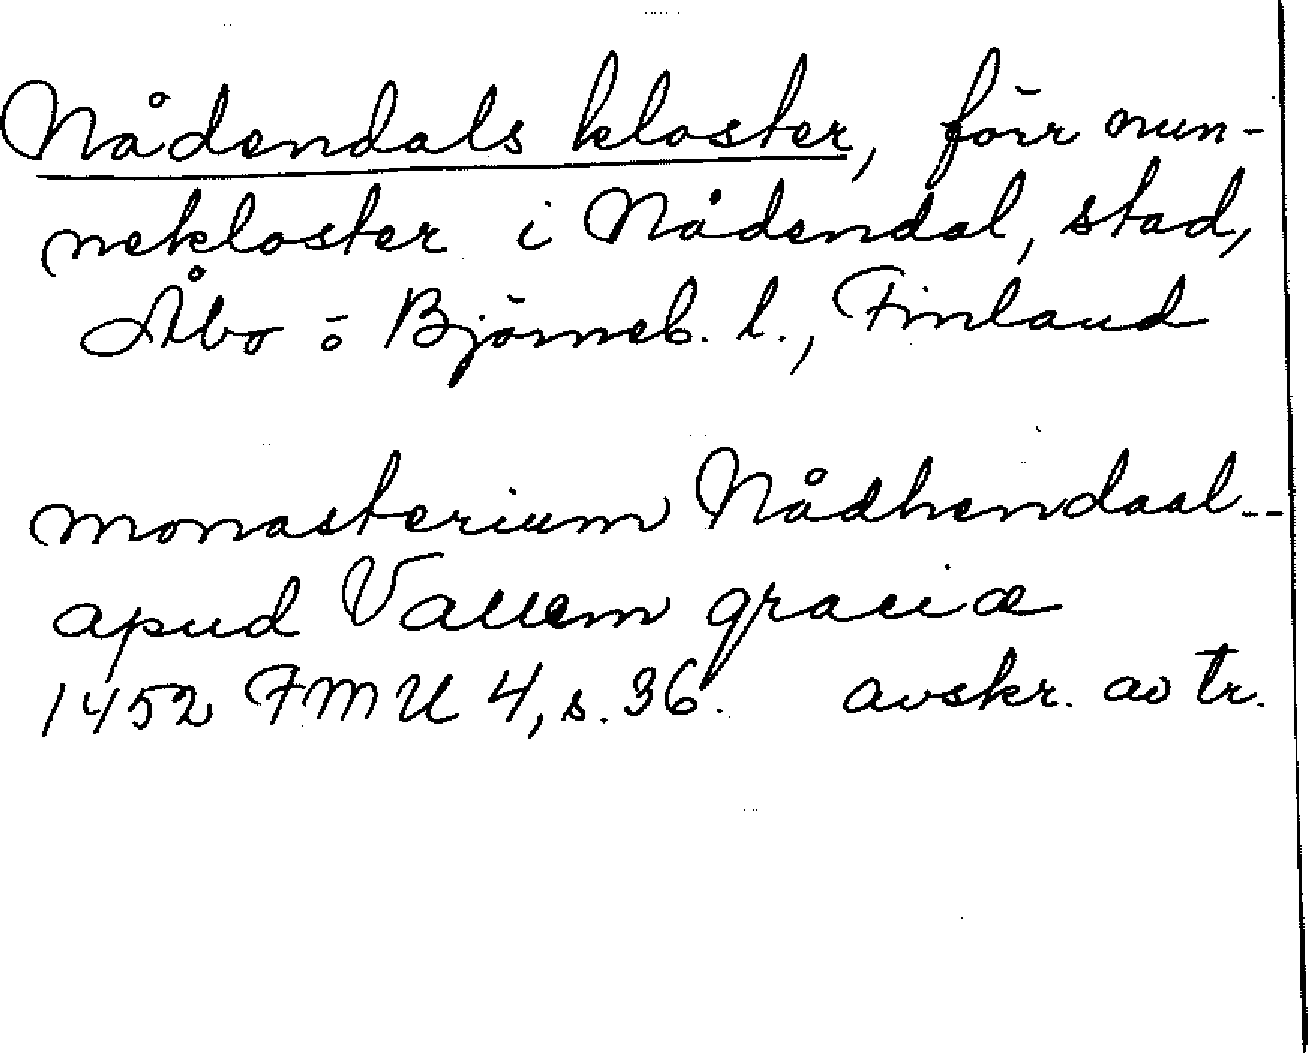 Nådendals kloster, förr nun-
nekloster i Nådendal, stad,
Åbo o Björneb. l., Finland
monasterium Nådhendaal--
apud Vallem graciæ
1452 FMU 4, s. 36. avskr. av tr.